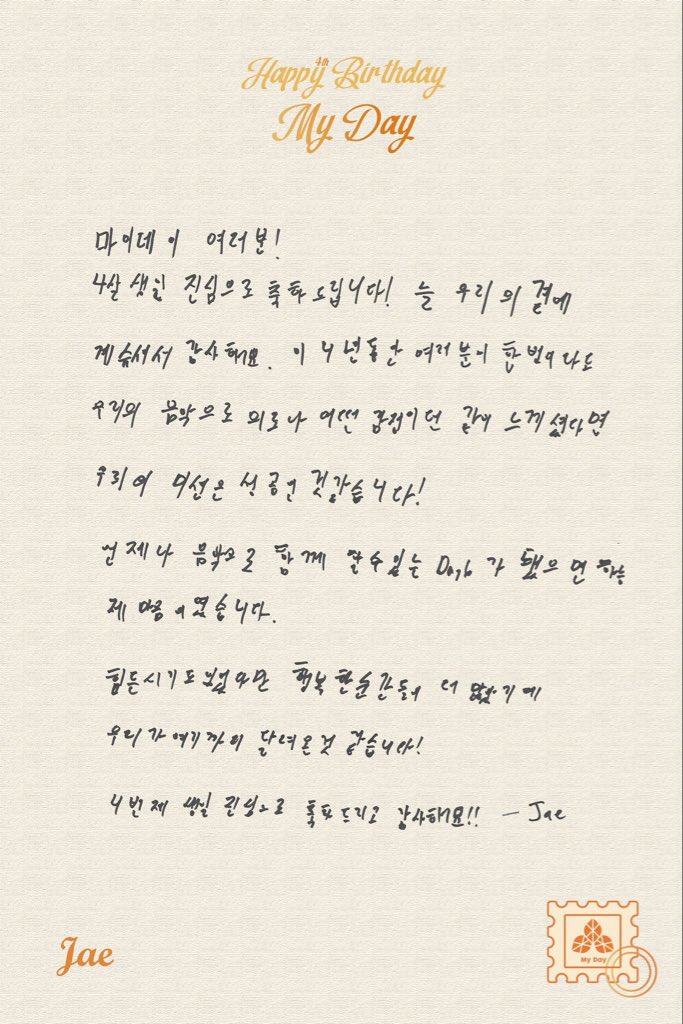 Happy 4th Birthday
My Day
마이데이 여러분!
4살 생일 진심으로 축하드립니다! 늘 우리의 곁에
계슈셔서 감사해요. 이 4년동안 여러분이 한번이라도
우리의 음악으로 위로나 어떤 감정이던 같이 느끼셨다면
우리의 미션은 성공인 것같습니다!
언제나 음악으로 함께 할수있는 Day6가 됐으면 하는
제 마음이였습니다.
힘든시기도 있었지만 행복한순간들이 더 많았기에
우리가 여기까지 달려온것 같습니다!
4번째 생일 진심으로 축하드리고 감사해요!! - Jae
Jae
My Day